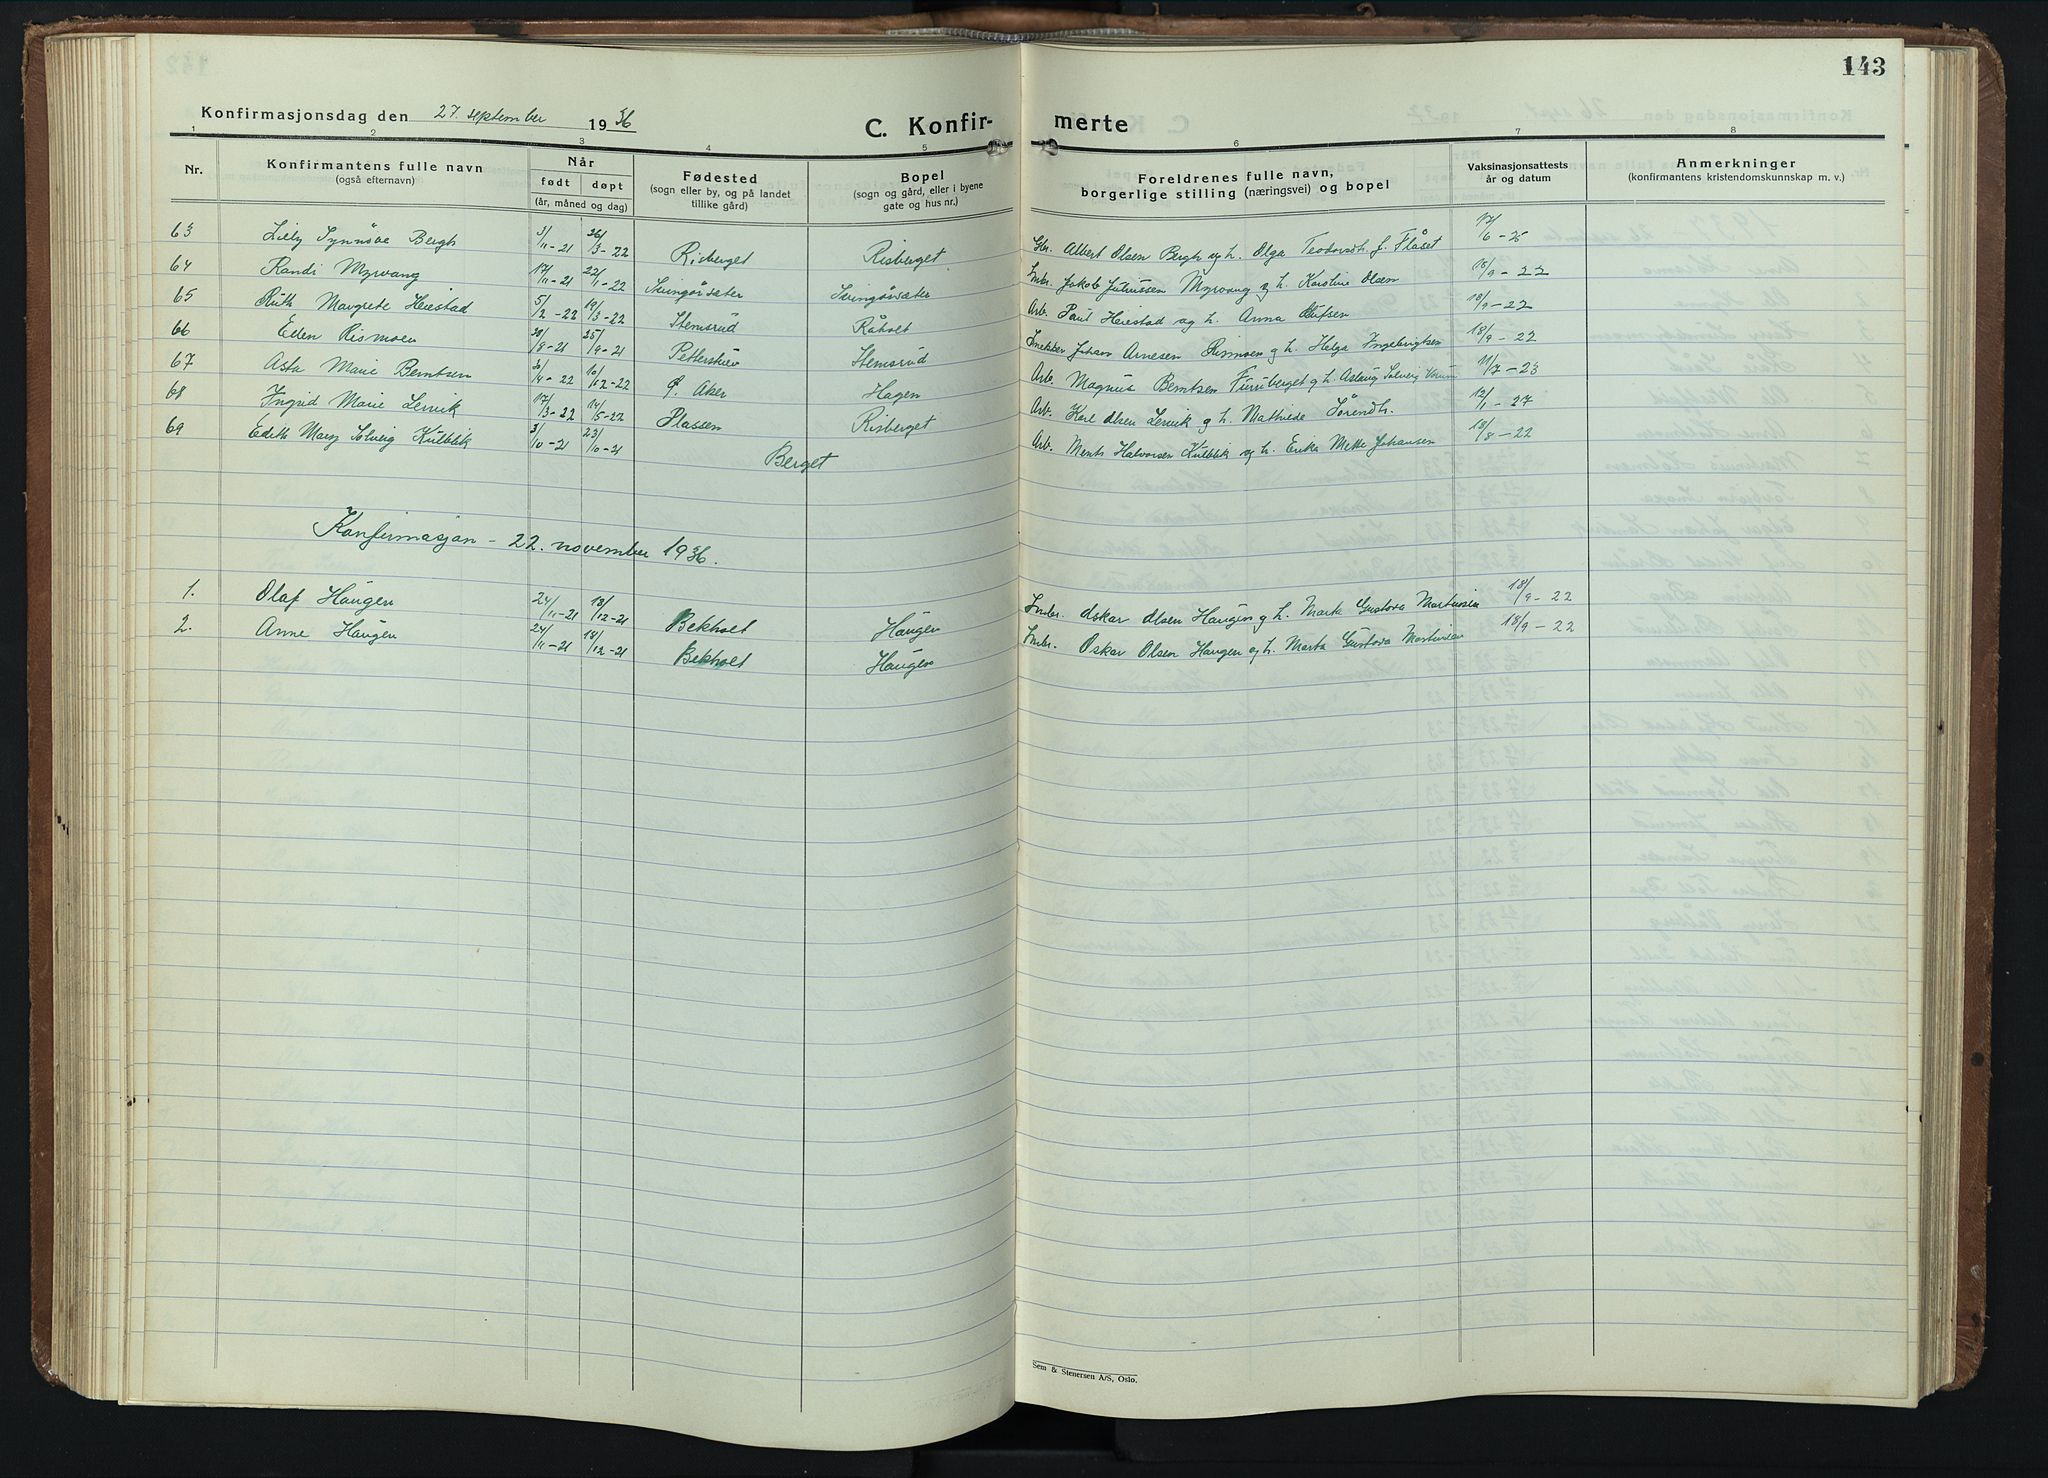 143
Konfirmasjonsdag den 27. september 1936
C. Konfir-merte
1 2 3 4 5 6 7 8
Nr.
Konfirmantens fulle navn
(også efternavn)
Når
født døpt
(år, måned og dag)
Fødested
(sogn eller by, og på landet
tillike gård)
Bopel
(sogn og gård, eller i byene
gate og hus nr.)
Foreldrenes fulle navn,
borgerlige stilling (næringsvei) og bopel
Vaksinasjonsattests
år og datum
Anmerkninger
(konfirmantens kristendomskunnskap m. v.)
63 Lilly Synnøve Bergh 3/11-21 26/3-22 Risberget Risberget Gbr. Albert Olsen Bergh og h. Olga Teodorsdt. f. Flåset 17/6-25
64 Randi Myrvang 17/11-21 22/1-22 Svingørsæter Svingørsæter Småbr. Jakob Julnussen Myrvang og h. Karoline Olsen 18/9-22
65 Ruth Margrete Heiestad 5/2-22 19/3-22 Stemsrud Råholt Arb. Paul Heiestad og h. Anna Olufsen 18/9-22
66 Eden Rismoen 30/8-21 25/9-21 Petterstuen Stemsrud Snekker Johan Arnesen Rismoen g h. Helga Ingebrigtsen 18/9-22
67 Asta Marie Berntsen 30/4-22 10/12-22 Ø. Aker Hagen Arb. Magnus Berntsen Furuberget g h. Aslaug Solveig 11/7-23
68 Ingrid Marie Lervik 17/3-22 14/5-22 Plassen Risberget Arb. Karl Olsen Lervik g h. Mathilde Sørendt. 12/1-27
69 Edith Mary Solveig Kulblik 3/10-21 23/10-21 Berget Arb. Ments Halvorsen Kulblik og h. Erika Mette Johansen 18/8-22
Konfirmasjon - 22. november 1936.
1. Olaf Haugen 24/11-21 18/12-21 Bekholt Haugen Småbr. Oskar Olsen Haugen g h. Marta Gustava Martinsen 18/9-22
2. Anne Haugen 24/11-21 18/12-21 Bekholt Haugen Småbr. Oskar Olsen Haugen og h. Marta Gustava Martinsen 18/9-22
Sem & Stenersen A/S, Oslo.